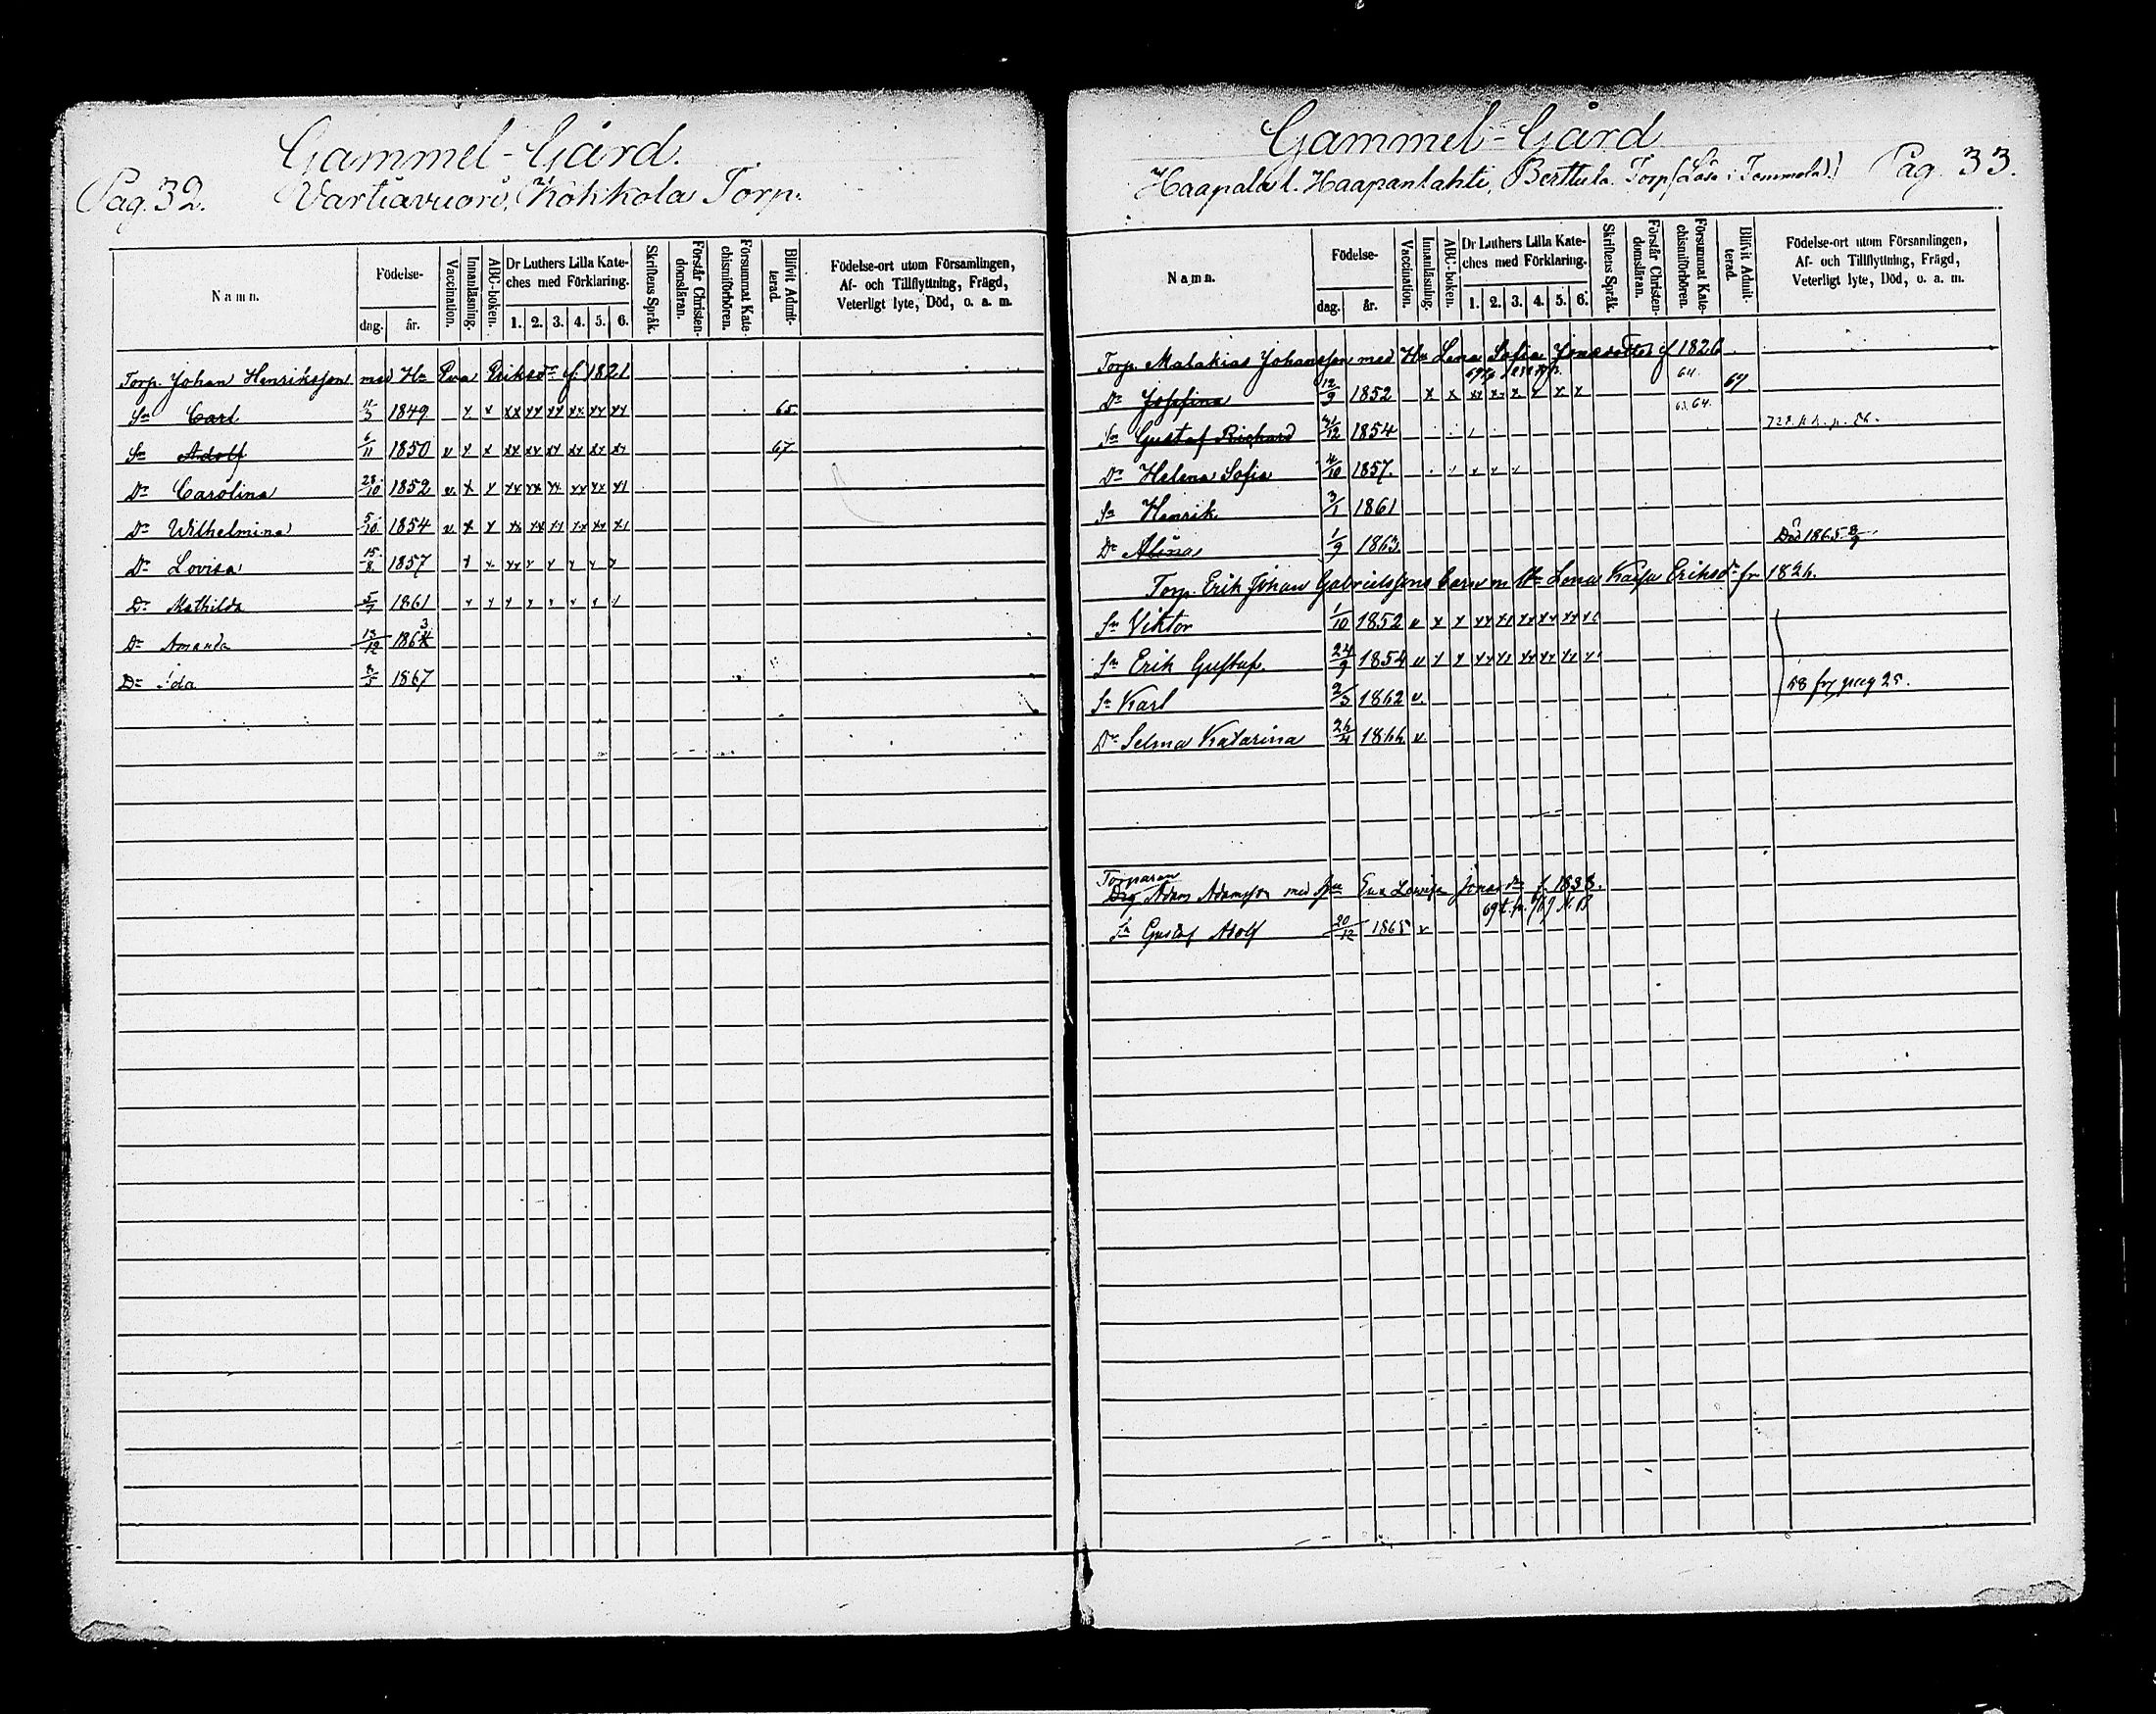 Gammel-Gård.
Pag. 32. Vartiavuori, Kokkola Torp.
Namn. Födelse- dag. år. Vaccination. Innanläsning. ABC-boken. Dr Luthers Lilla Kateches med Förklaring. 1. 2. 3. 4. 5. 6. Skriftens Språk. Förstår Christendomsläran. Försummat Katechismiförhören. Blifvit Admitterad. Födelse-ort utom Församlingen, Af- och Tillflyttning, Frägd, Veterligt lyte, Död, o. a. m.
Torp. Johan Henriksson med Hu Eva Eriksdr f. 1821
Sn Carl 11/3 1849 x x xx xx xx xx xx xx 65
Sn Adolf 6/11 1850 v x x xx xx xx xx xx xx 67.
Dr Carolina 28/10 1852 v. x x xx xx xx xx xx x1
Dr Wilhelmina 5/10 1854 v. x x
Dr Lovisa 15/8 1857
Dr Mathilda 5/7 1861
Dr Amanda 13/12 1863
Dr Ida 1867
Gammel-Gård
Haapala l. Haapanlahti, Berttula Torp (Läsa i Tommola) Pag. 33.
Namn. Födelse- dag. år. Vaccination. Innanläsning. ABC-boken. Dr Luthers Lilla Kateches med Förklaring. 1. 2. 3. 4. 5. 6. Skriftens Språk. Förstår Christendomsläran. Försummat Katechismiförhören. Blifvit Admitterad. Födelse-ort utom Församlingen, Af- och Tillflyttning, Frägd, Veterligt lyte, Död, o. a. m.
Torp. Malakias Johansson med Hu Lena Sofia Jonasdotter f 1826
Dr Josefina 12/9 1852 x x 64. 67
Sn Gustaf Richard 1854 63. 64.
Dr Helena Sofia 4/10 1857.
Sn Henrik 3/1 1861
Dr Alina 1/9 1863. Död 1865
Torp. Erik Johan Gabrielssons barn m Hu Lena Kajsa Eriksdr fr 1826.
Sn Viktor 1/10 1852 v x x
Sn Erik Gustaf 24/9 1854 v x x
Sn Karl 2/3 1862 v. 68 fr pag 25.
Dr Selma Katarina 26/4 1866 v.
Torparen
Drg Adam Adamsson med Hu Eva Lovisa Jonasdr f. 1838.
Sn Gustaf Adolf 20/12 1865 v